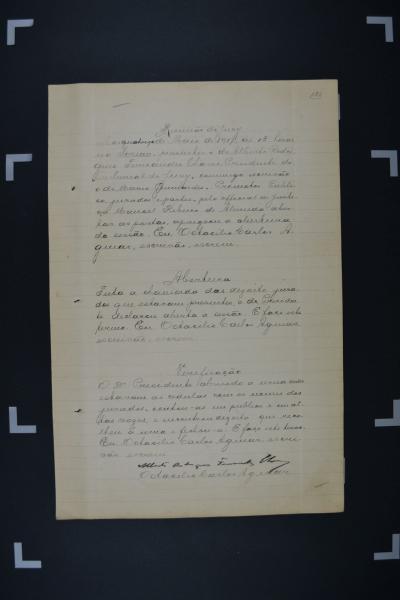 Reunião do Jury
Aos quatorze de Maio de 1918, ás 12 horas
no Forum, presentes o dr. Alberto Rodri-
gues Fernandes Chaves Presidente do
Tribunal do Jury, commigo escrivão
o dr. Mario Promotor Publi-
co, jurados e partes, pelo official de justi-
ça Manoel Ribeiro de Almeida aber-
tas as portas, apregoou a abertura
da sessão. Eu, Octacilio Carlos A-
guiar, escrivão, escrevi.
Abertura
Feita a chamada dos dezoito jura-
dos que estavam presentes, o dr. Presiden-
te declarou aberta a sessão. E faço este
termo. Eu Octacilio Carlos Aguiar
escrivão, escrevi.
Verificação
O Dr Presidente abrindo a urna
estavam as cedulas com os nomes dos
jurados, contou-as em publico e em al-
tas vozes, e encontrou dezoito que reco-
lheu á urna e fechou-a. E faço este termo.
Eu, Octacilio Carlos Aguiar, escri-
vão escrevi.
Alberto Rodrigues Fernandes Chaves
Octacilio Carlos Aguiar